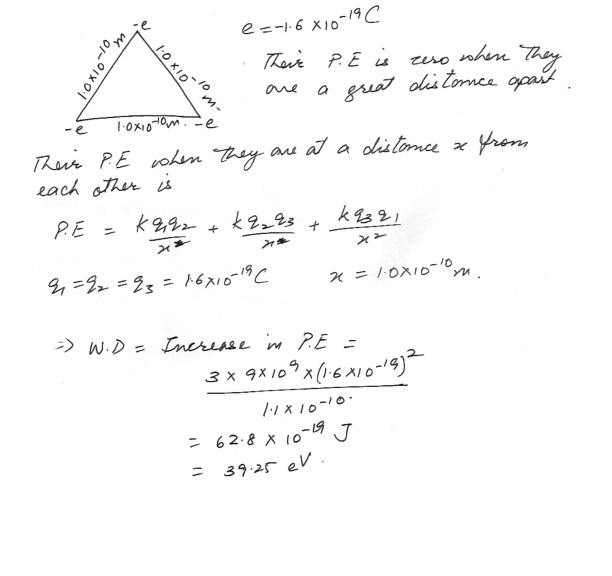 -e
1.0×10⁻¹⁰ m
1.0×10⁻¹⁰ m.
-e 1.0×10⁻¹⁰m. -e
e = -1.6 ×10⁻¹⁹ C
Their P.E is zero when they
are a great distance apart.
Their P.E when they are at a distance x from
each other is
P.E = kq₁q₂/x + kq₂q₃/x + kq₃q₁/x²
q₁ = q₂ = q₃ = 1.6×10⁻¹⁹ C x = 1.0×10⁻¹⁰ m.
=> W.D = Increase in P.E =
3 × 9×10⁹ × (1.6 ×10⁻¹⁹)²
1.1 × 10⁻¹⁰.
= 62.8 × 10⁻¹⁹ J
= 39.25 eV.